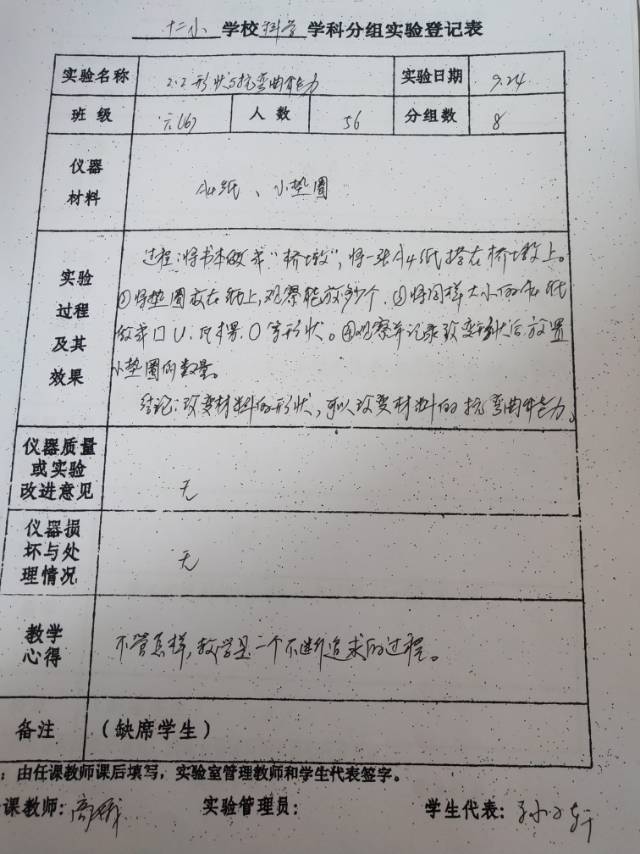 十二小 学校 科学 学科分组实验登记表
实验名称 2.2形状与抗弯曲能力 实验日期 9.24
班级 六(6) 人数 56 分组数 8
仪器材料 A4纸、小垫圈
实验过程及其效果
过程:将书本做成“桥墩”,将一张A4纸搭在桥墩上。
①将垫圈放在纸上,观察能放多少个.②将同样大小的A4纸
做成口U、O等形状。③观察并记录改变形状后放置
小垫圈的数量。
结论:改变材料的形状,可以改变材料的抗弯曲能力。
仪器质量或实验改进意见 无
仪器损坏与处理情况 无
教学心得 不管怎样,教学是一个不断追求的过程。
备注 (缺席学生)
:由任课教师课后填写,实验室管理教师和学生代表签字。
课教师: 实验管理员: 学生代表:孙